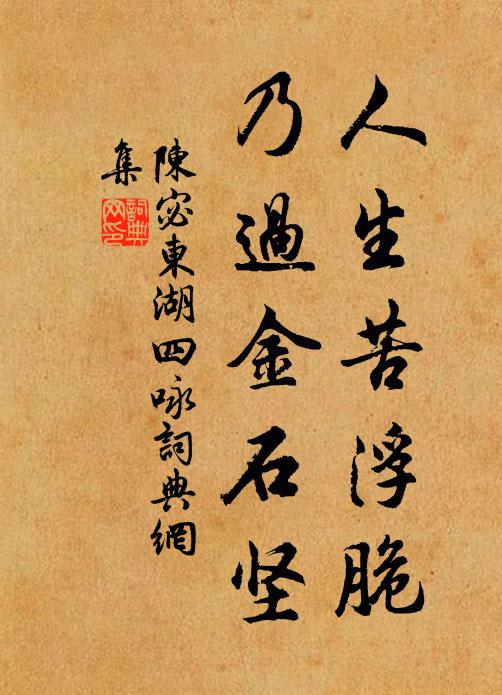 人生苦浮脆
乃過金石坚
陳宓東湖四咏詞典網
集
詞典網印